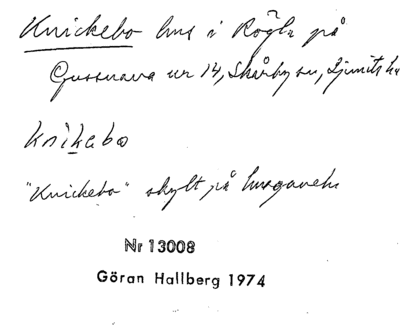 Knickebo hus i Rögla på
Gussnava nr 14, Skårby sn, Ljunits hd
knikabo
"Knickebo" skylt på husgaveln
Nr 13008
Göran Hallberg 1974